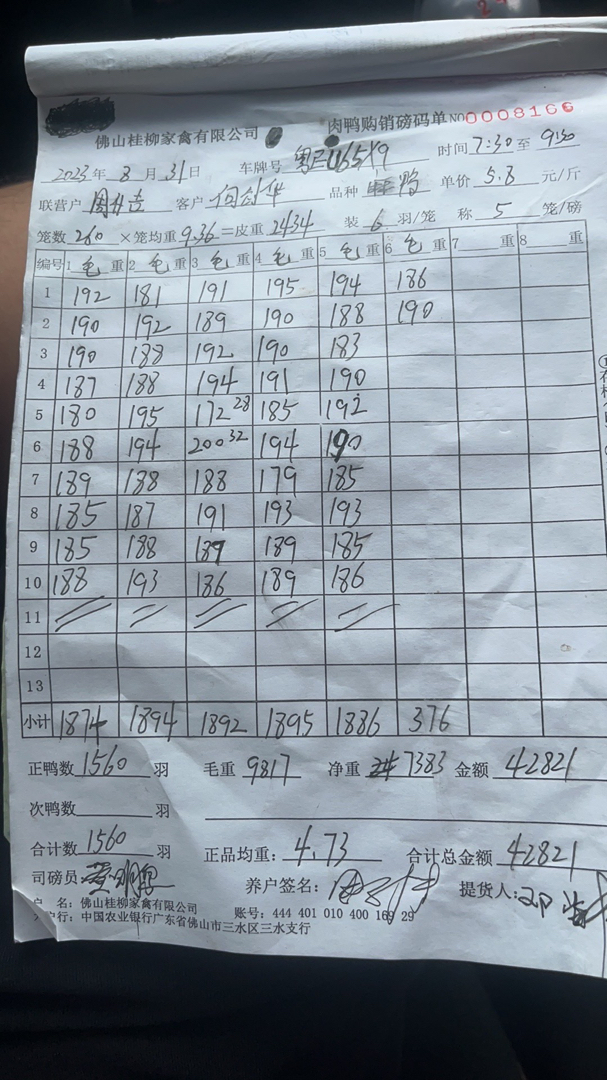 佛山桂柳家禽有限公司 肉鸭购销磅码单 NO0008166
2023年8月31日 车牌号 时间 7:30至9:30
联营户 客户 何剑华 品种 鸭 单价 5.8 元/斤
笼数 260 ×笼均重 9.36=皮重 2434 装 6 羽/笼 称 5 笼/磅
编号 1 毛 重 2 毛 重 3 毛 重 4 毛 重 5 毛 重 6 毛 重 7 重 8 重
1 192 181 191 195 194 186
2 190 192 189 190 188 190
3 190 188 192 190 183
4 187 188 194 191 190
5 180 195 172 28 185 192
6 188 194 200 32 194 190
7 189 188 188 179 185
8 185 187 191 193 193
9 185 188 189 189 185
10 188 193 186 189 186
11
12
13
小计 1874 1894 1892 1895 1886 376
正鸭数 1560 羽 毛重 9817 净重 7383 金额 42821
次鸭数 羽
合计数 1560 羽 正品均重: 4.73 合计总金额 42821
司磅员: 养户签名: 提货人:
户 名: 佛山桂柳家禽有限公司 账号: 444 401 010 400 169 29
户行: 中国农业银行广东省佛山市三水区三水支行